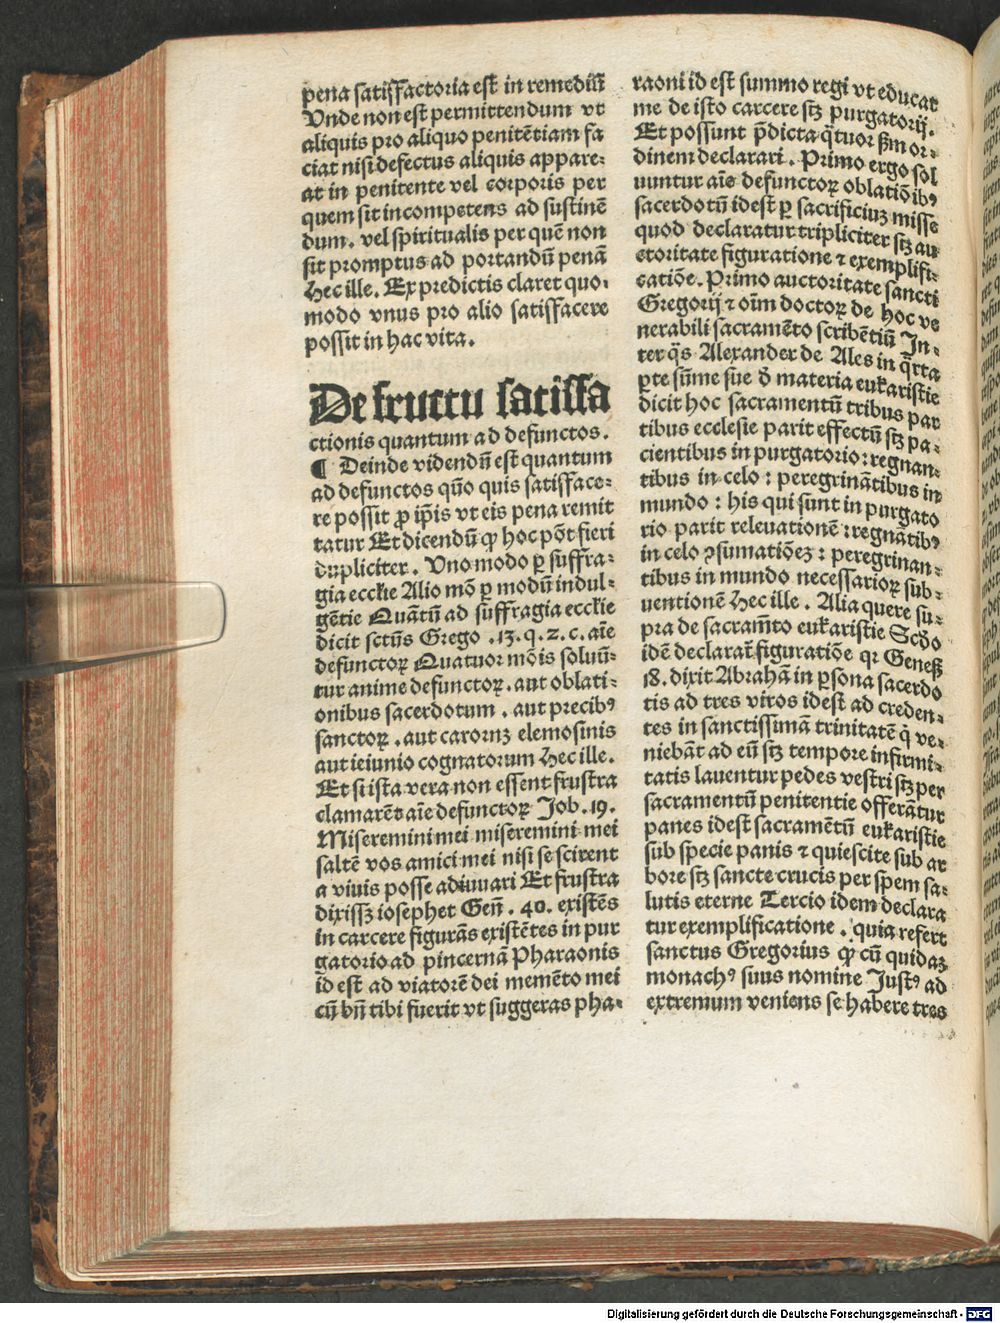 pena satisfactoria est in remediū
Vnde non est permittendum vt
aliquis pro aliquo penitētiam fa
ciat nisi defectus aliquis appare⸗
at in penitente vel corporis per
quem sit incompetens ad sustinē
dum. vel spiritualis per quē non
sit promptus ad portandū penā
Hec ille. Ex predictis claret quo⸗
modo vnus pro alio satisfacere
possit in hac vita.
De fructu satisfa
ctionis quantum ad defunctos.
¶ Deinde videndū est quantum
ad defunctos qūo quis satisface⸗
re possit ꝓ ip̄is vt eis pena remit
tatur Et dicendū ꝙ hoc pōt fieri
dupliciter. Vno modo ꝑ suffra⸗
gia eccľie Alio mō ꝑ modū indul⸗
gētie Quātū ad suffragia eccľie
dicit sctūs Grego .13.q.2.c. aīe
defunctoꝝ Quatuor mōis soluū⸗
tur anime defunctoꝝ. aut oblati⸗
onibus sacerdotum. aut precibꝰ
sanctoꝝ. aut caroruʒ elemosinis
aut ieiunio cognatorum Hec ille.
Et si ista vera non essent frustra
clamarēt aīe defunctoꝝ Job .19.
Miseremini mei miseremini mei
saltē vos amici mei nisi se scirent
a viuis posse adiuuari Et frustra
dixissʒ iosephet Geñ. 40. existēs
in carcere figurās existētes in pur
gatorio ad pincernā Pharaonis
id est ad viatorē dei memēto mei
cū bn̄ tibi fuerit vt suggeras pha⸗
raoni id est summo regi vt educat
me de isto carcere sꝫ purgatorij.
Et possunt p̄dicta q̄tuor ẜm or⸗
dinem declarari. Primo ergo sol
uuntur aīe defunctoꝝ oblatiōibꝰ
sacerdotū idest ꝑ sacrificiuʒ misse
quod declaratur tripliciter sꝫ au
ctoritate figuratione ⁊ exemplifi⸗
catiōe. Primo auctoritate sancti
Gregorij ⁊ oīm doctoꝝ de hoc ve
nerabili sacramēto scribētiū In⸗
ter q̄s Alexander de Ales in q̄rta
ꝑte sūme sūe đ materia eukaristie
dicit hoc sacramentū tribus par
tibus ecclesie parit effectū sꝫ pa⸗
cientibus in purgatorio: regnan⸗
tibus in celo: peregrinātibus in
mundo: his qui sunt in purgato
rio parit releuationē: regnātibꝰ
in celo ꝯsumatiōeʒ: peregrinan⸗
tibus in mundo necessarioꝝ sub⸗
uentionē Hec ille. Alia quere su⸗
pra de sacram̄to eukaristie Scd̄o
idē declarat̄ figuratiōe qꝛ Geneẜ
18. dixit Abrahā in ꝑsona sacerdo
tis ad tres viros idest ad creden⸗
tes in sanctissimā trinitatē q̄ ve⸗
niebāt ad eū sꝫ tempore infirmi⸗
tatis lauentur pedes vestri sꝫ per
sacramentū penitentie offerātur
panes idest sacramētū eukaristie
sub specie panis ⁊ quiescite sub ar
bore sꝫ sancte crucis per spem sa⸗
lutis eterne Tercio idem declara
tur exemplificatione. quia refert
sanctus Gregorius ꝙ cū quidaʒ
monachꝰ suus nomine Justꝰ ad
extremum veniens se habere tres
Digitalisierung gefördert durch die Deutsche Forschungsgemeinschaft - DFG